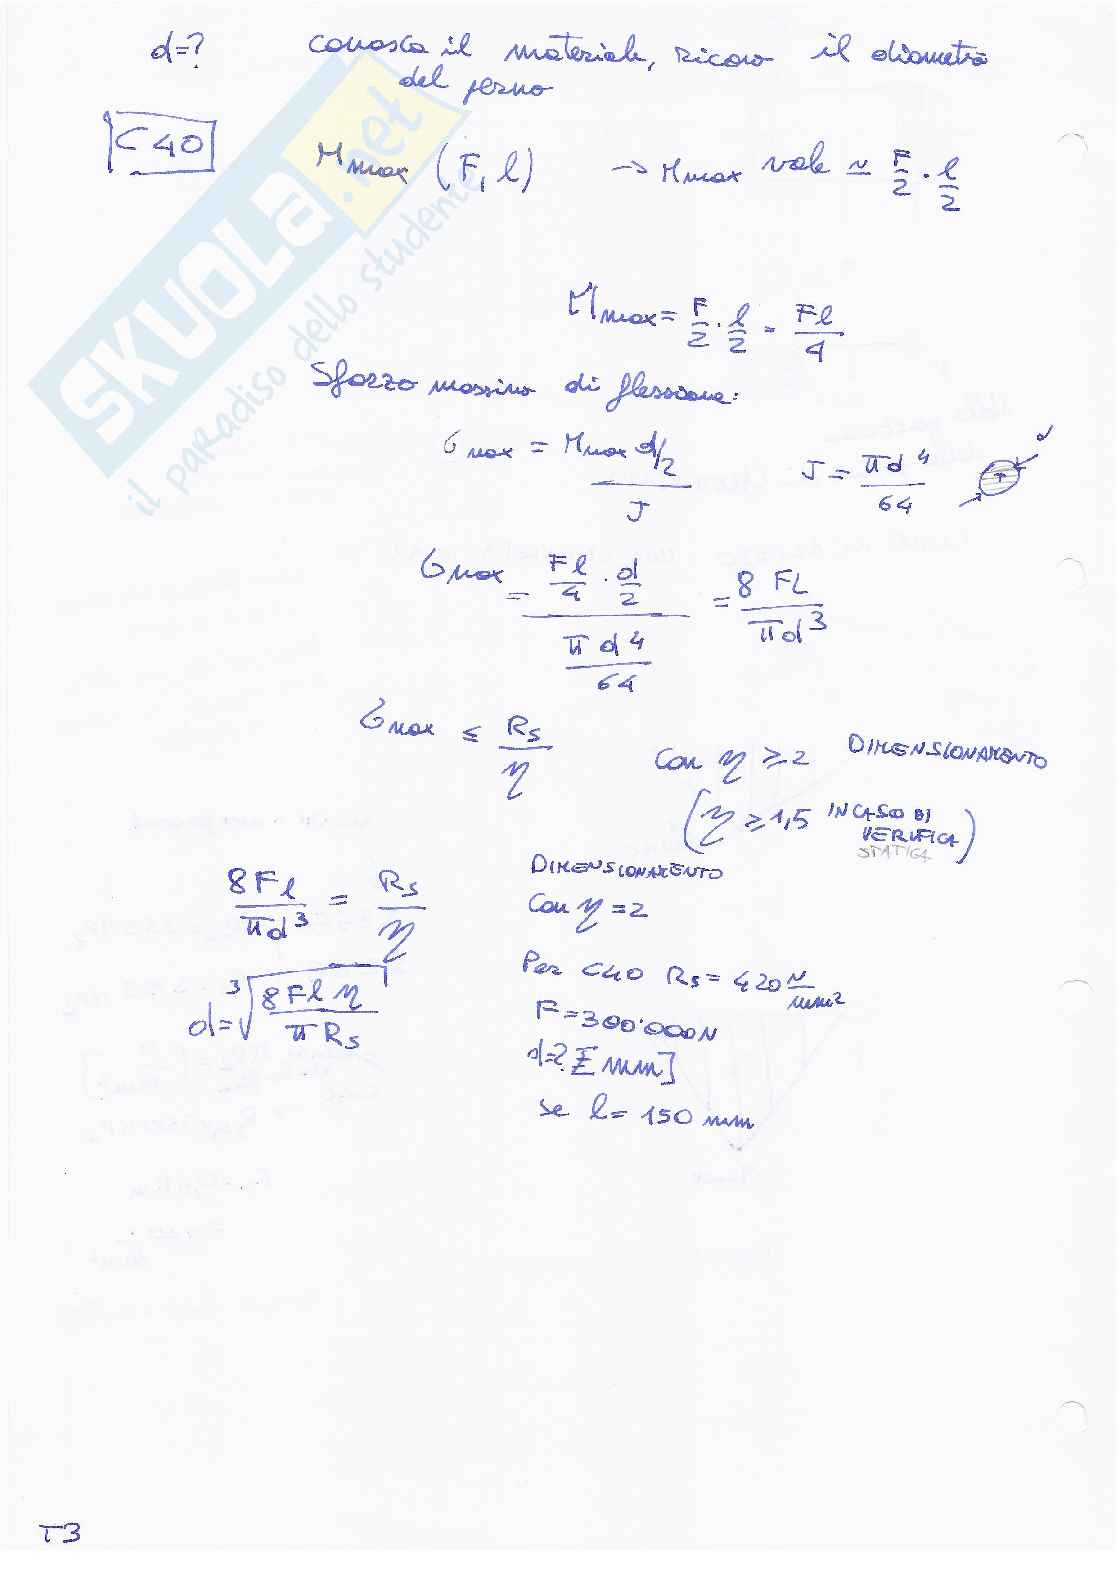 d=? conosco il materiale, ricavo il diametro
del perno
C40 Mmax (F, l) → Mmax vale ≃ F/2 · l/2
Mmax = F/2 · l/2 = Fl/4
Sforzo massimo di flessione:
σmax = Mmax d/2 / J J = πd⁴/64 d
σmax = (Fl/4 · d/2) / (πd⁴/64) = 8FL/πd³
σmax ≤ Rs/η con η ≥ 2 DIMENSIONAMENTO
(η ≥ 1,5 IN CASO DI
VERIFICA
STATICA)
8Fl/πd³ = Rs/η
DIMENSIONAMENTO
Con η = 2
d = ³√(8Flη/πRs)
Per C40 Rs = 420 N/mm²
F = 300'000N
d=? [mm]
se l = 150 mm
T3
SKUOLA.net
il paradiso dello studente